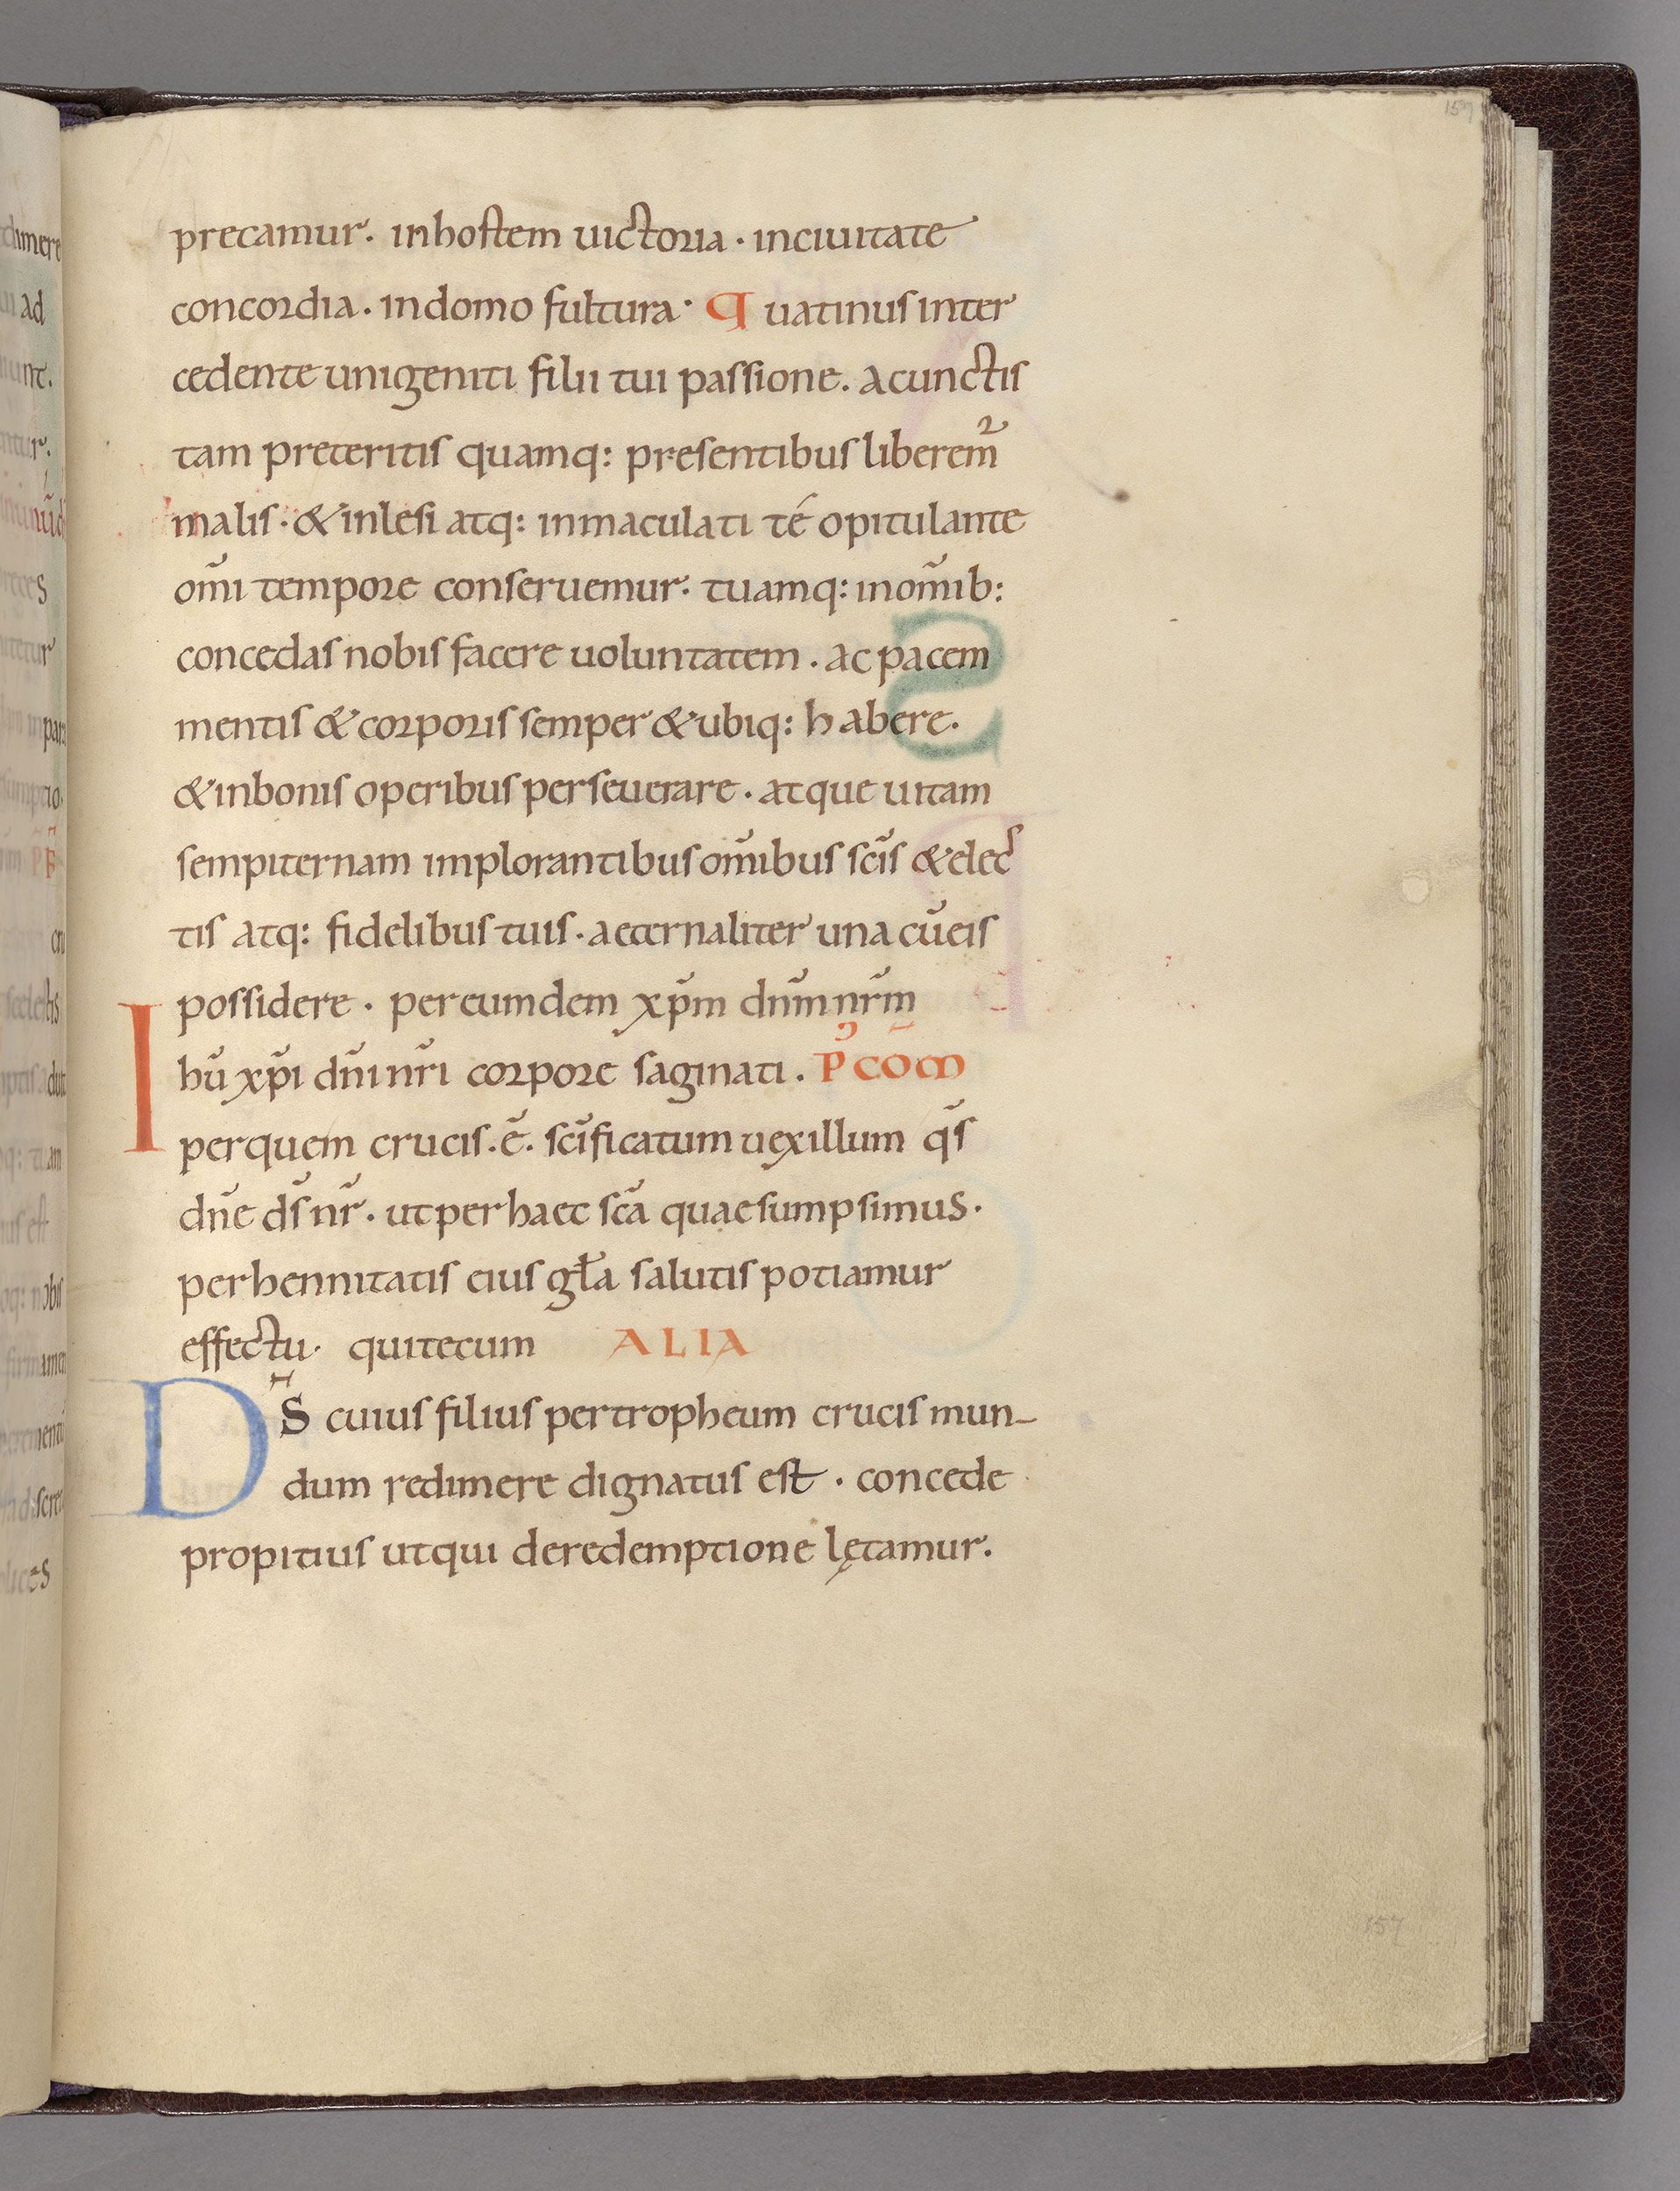 157
precamur. inhostem uictoria · inciuitate
concordia. indomo fultura· Quatinus inter
cedente unigeniti filii tui passione. a cunctis
tam preteritis quamq: presentibus liberem̃²
malis · & inlesi atq: inmaculati té opitulante
om̄i tempore conseruemur· tuamq: inom̄ib:
concedas nobis facere uoluntatem . ac pacem
mentis & corporis semper & ubiq: habere.
& inbonis operibus perseuerare . atque uitam
sempiternam implorantibus om̄ibus sc̄is & elec
tis atq: fidelibus tuis · aeternaliter una cū eis
possidere . per eumdem xp̄m dn̄m nr̄m
Ihū xp̄i dn̄i nr̄i corpore saginati . P̉ CO̅M
per quem crucis . ē . sc̄ificatum uexillum q̄s
dn̄e ds̄ nr̄ . ut per haec sc̄a quae sumpsimus ·
perhennitatis eius gła salutis potiamur
effectu · qui tecum ALIA
DS̄ cuius filius per tropheum crucis mun-
dum redimere dignatus est · concede
propitius ut qui de redemptione lętamur.
157